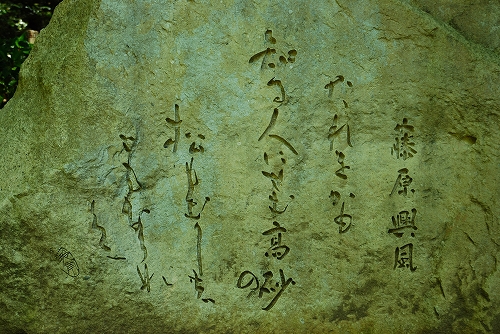 藤原興風
たれをかも
知る人にせむ高砂の
松もむかしの
ならな
くに